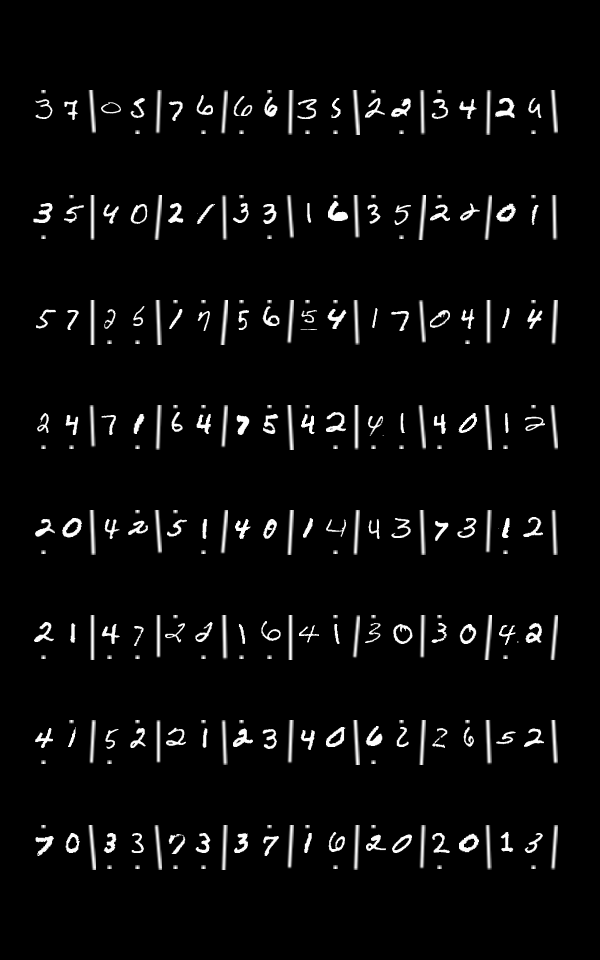 3̇ 7 | 0 5̣ | 7 6̣ | 6 6̇ | 3̣ 5̣ | 2̇ 2̣ | 3̇ 4 | 2 4̣ |
3̣ 5̇ | 4 0 | 2 1 | 3̇ 3̣ | 1 6̇ | 3̇ 5̣ | 2̇ 2 | 0 1̇ |
5 7 | 2̣ 5̣ | 1̇ 7̇ | 5̇ 6̇ | 5̇ 4̇ | 1 7 | 0 4̣ | 1 4̇ |
2̣ 4̣ | 7 1̣ | 6̇ 4̇ | 7 5̇ | 4̇ 2̣ | 4̣ 1̣ | 4̣ 0 | 1̣ 2̇ |
2̣ 0 | 4 2̇ | 5̇ 1̣ | 4 0 | 1 4̣ | 4 3 | 7̣ 3 | 1̣ 2 |
2̣ 1 | 4̣ 7̣ | 2̇ 2̣ | 1̣ 6̣ | 4 1̇ | 3̇ 0 | 3̇ 0 | 4̣ 2 |
4̣ 1̇ | 5̣ 2̇ | 2 1̇ | 2̇ 3 | 4 0 | 6̣ 2̇ | 2 6̇ | 5 2 |
7̇ 0 | 3̣ 3̣ | 7̣ 3̣ | 3 7̇ | 1̇ 6̣ | 2̇ 0 | 2̣ 0 | 1 3̣ |